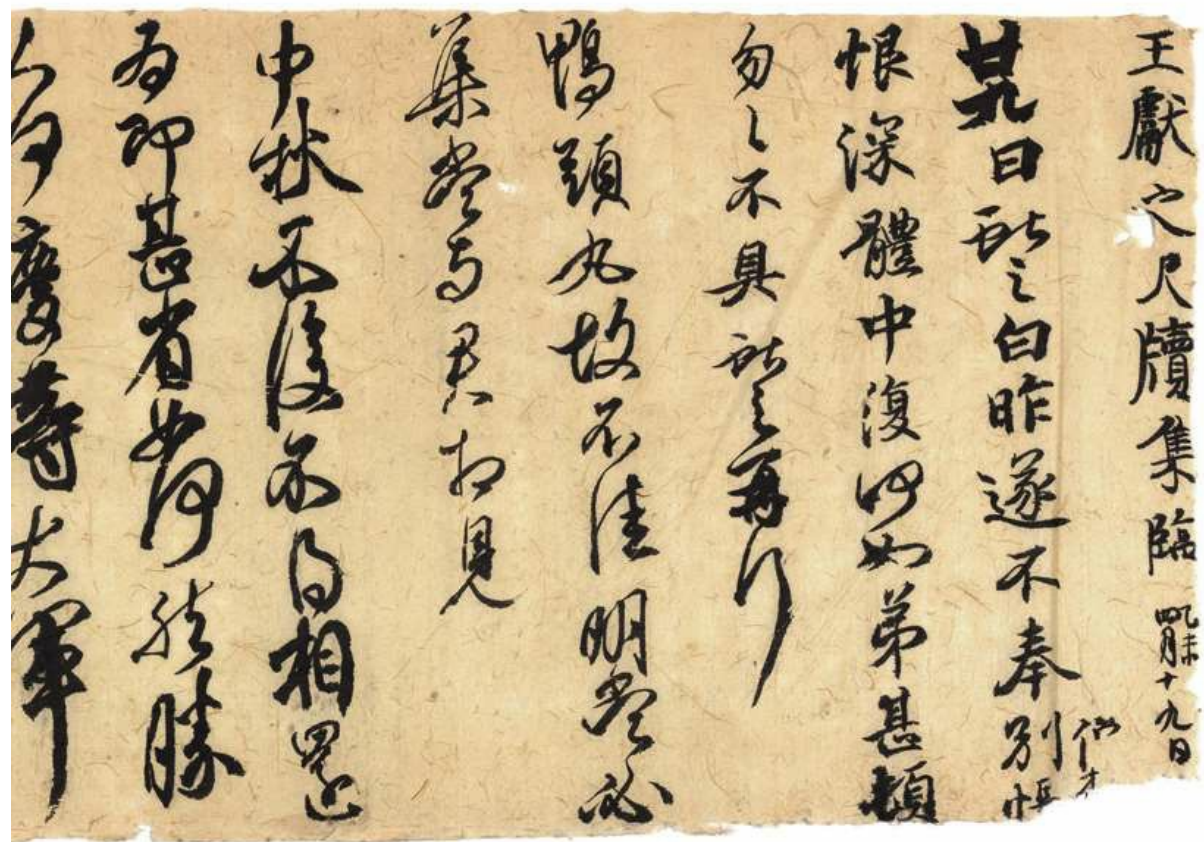 王獻之尺牘集臨 未四月十九日
廿九日獻之白昨遂不奉別悵
恨深體中復何如弟甚頓
匆々不具獻之再拜
鴨頭丸故不佳明當必
集當与君相見
中秋不復不得相還
為即甚省如何然勝
人何慶等大軍